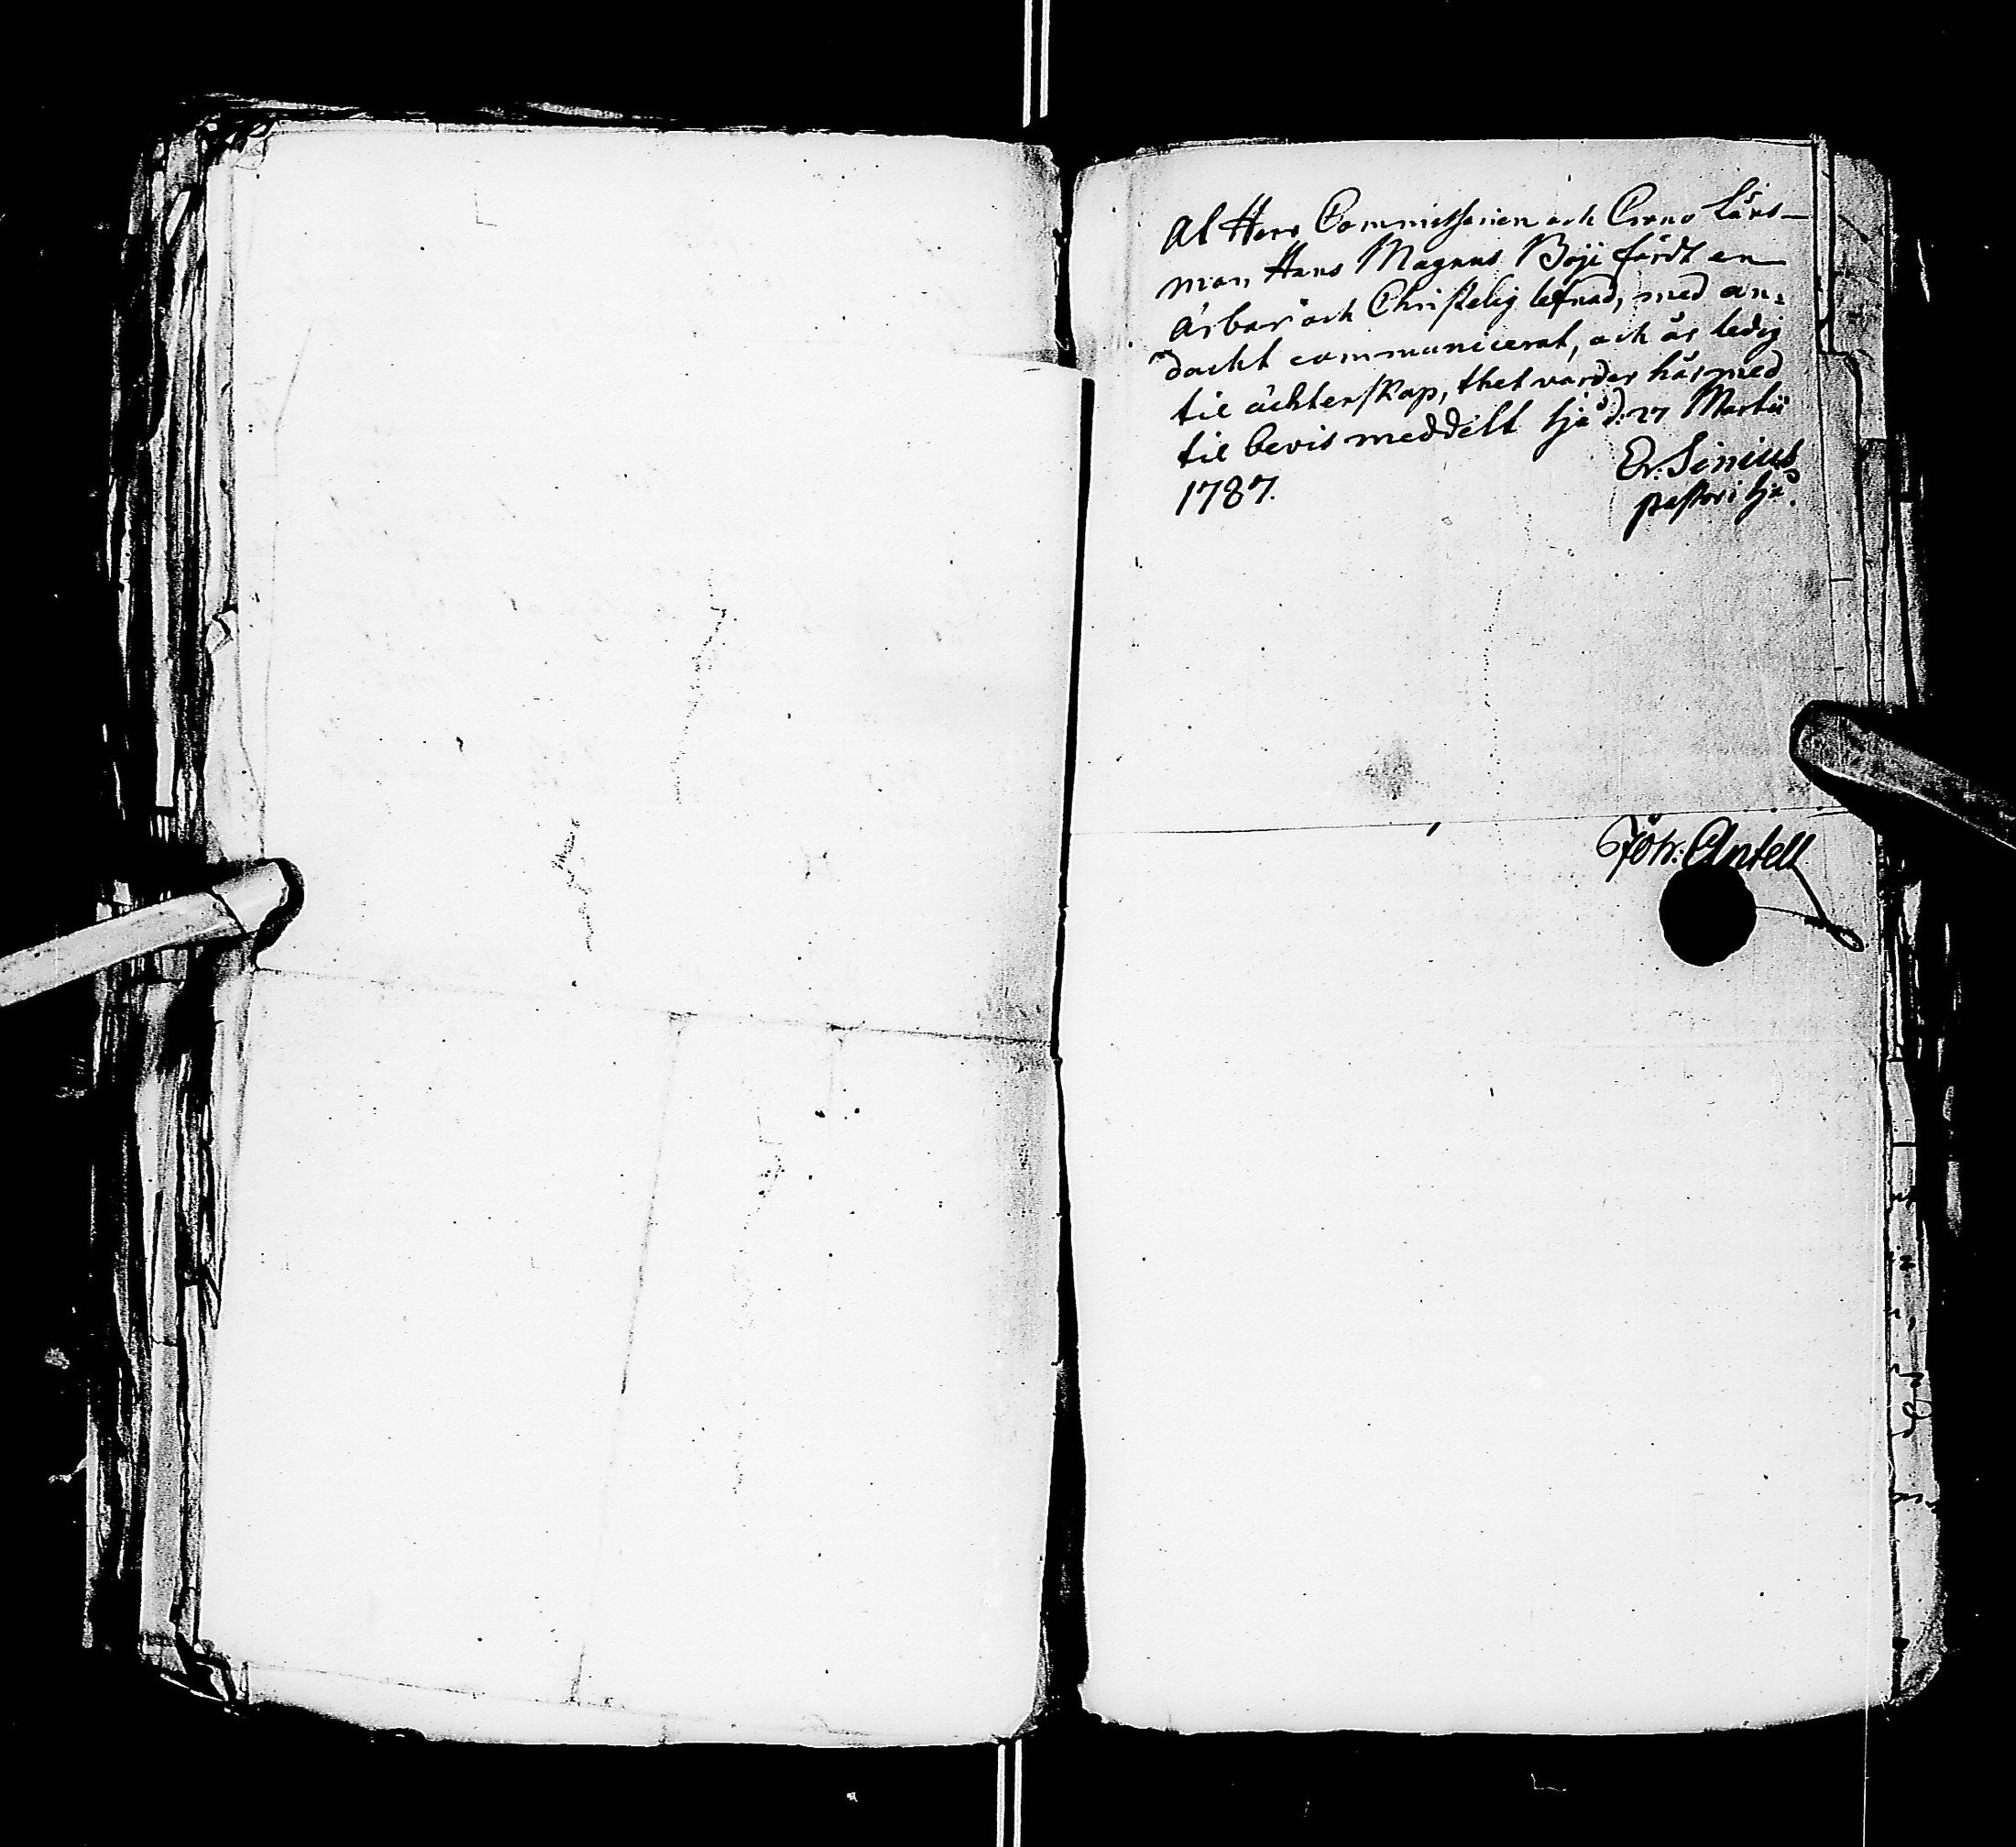 At Herr Commissarien och Crono Läns-
man Hans Magnus Böje fördt en
ärbar och Christelig lefnad, med an=
dacht communicerat, och är ledig
til ächtenskap, thet varder härmed
til bevis meddelt d: 27 Martii
1787.
Er. Sinius
pastor i
Joh: Antell